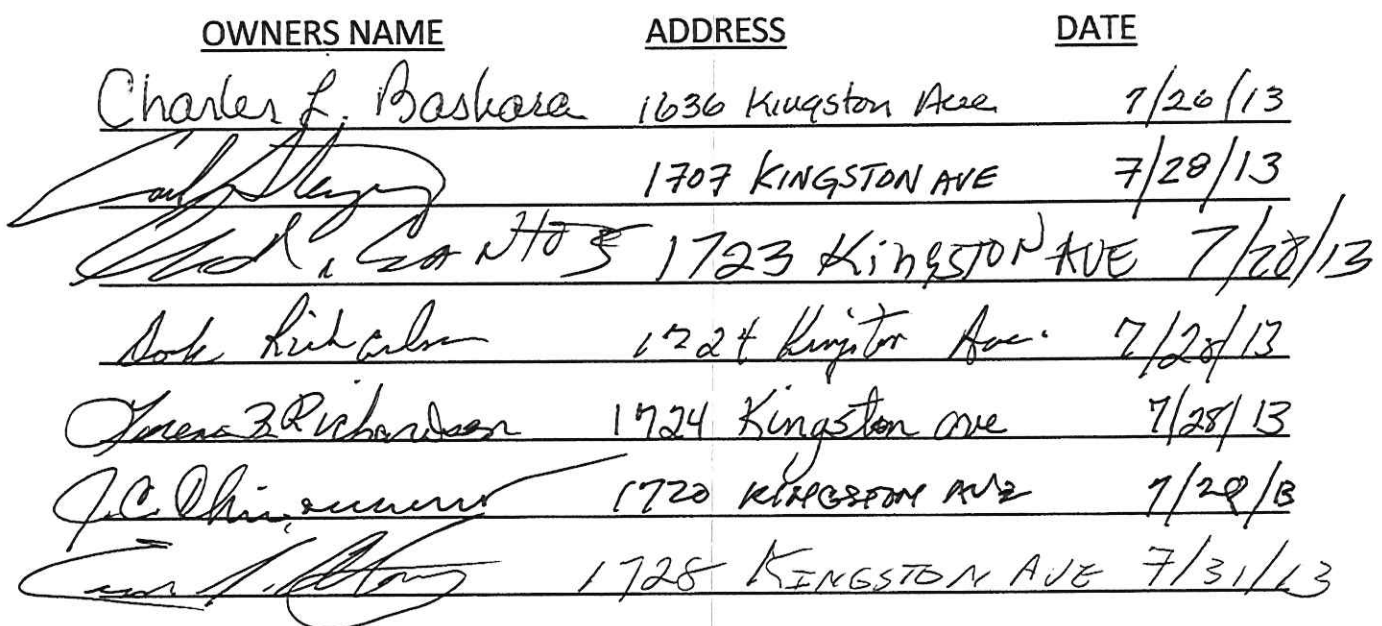 OWNERS NAME ADDRESS DATE
Charles L. Baskara 1636 Kingston Ave 7/26/13
1707 KINGSTON AVE 7/28/13
SANTOS 1723 KINGSTON AVE 7/28/13
Richardson 1724 Kingston Ave. 7/28/13
Richardson 1724 Kingston ave 7/28/13
J.C. 1720 KINGSTON AVE 7/29/13
KINGSTON AVE 7/31/13